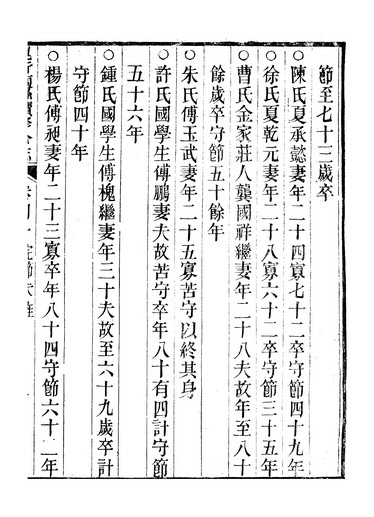 節至七十三歲卒
○陳氏夏承懿妻年二十四寡七十二卒守節四十九年
○徐氏夏乾元妻年二十八寡六十二卒守節三十五年
○曹氏金家莊人龔國祥繼妻年二十八夫故年至八十
餘歲卒守節五十餘年
○朱氏傅玉武妻年二十五寡苦守以終其身
○許氏國學生傅鵬妻夫故苦守卒年八十有四計守節
五十六年
○鍾氏國學生傅槐繼妻年三十夫故至六十九歲卒計
守節四十年
○楊氏傅昶妻年二十三寡卒年八十四守節六十二年